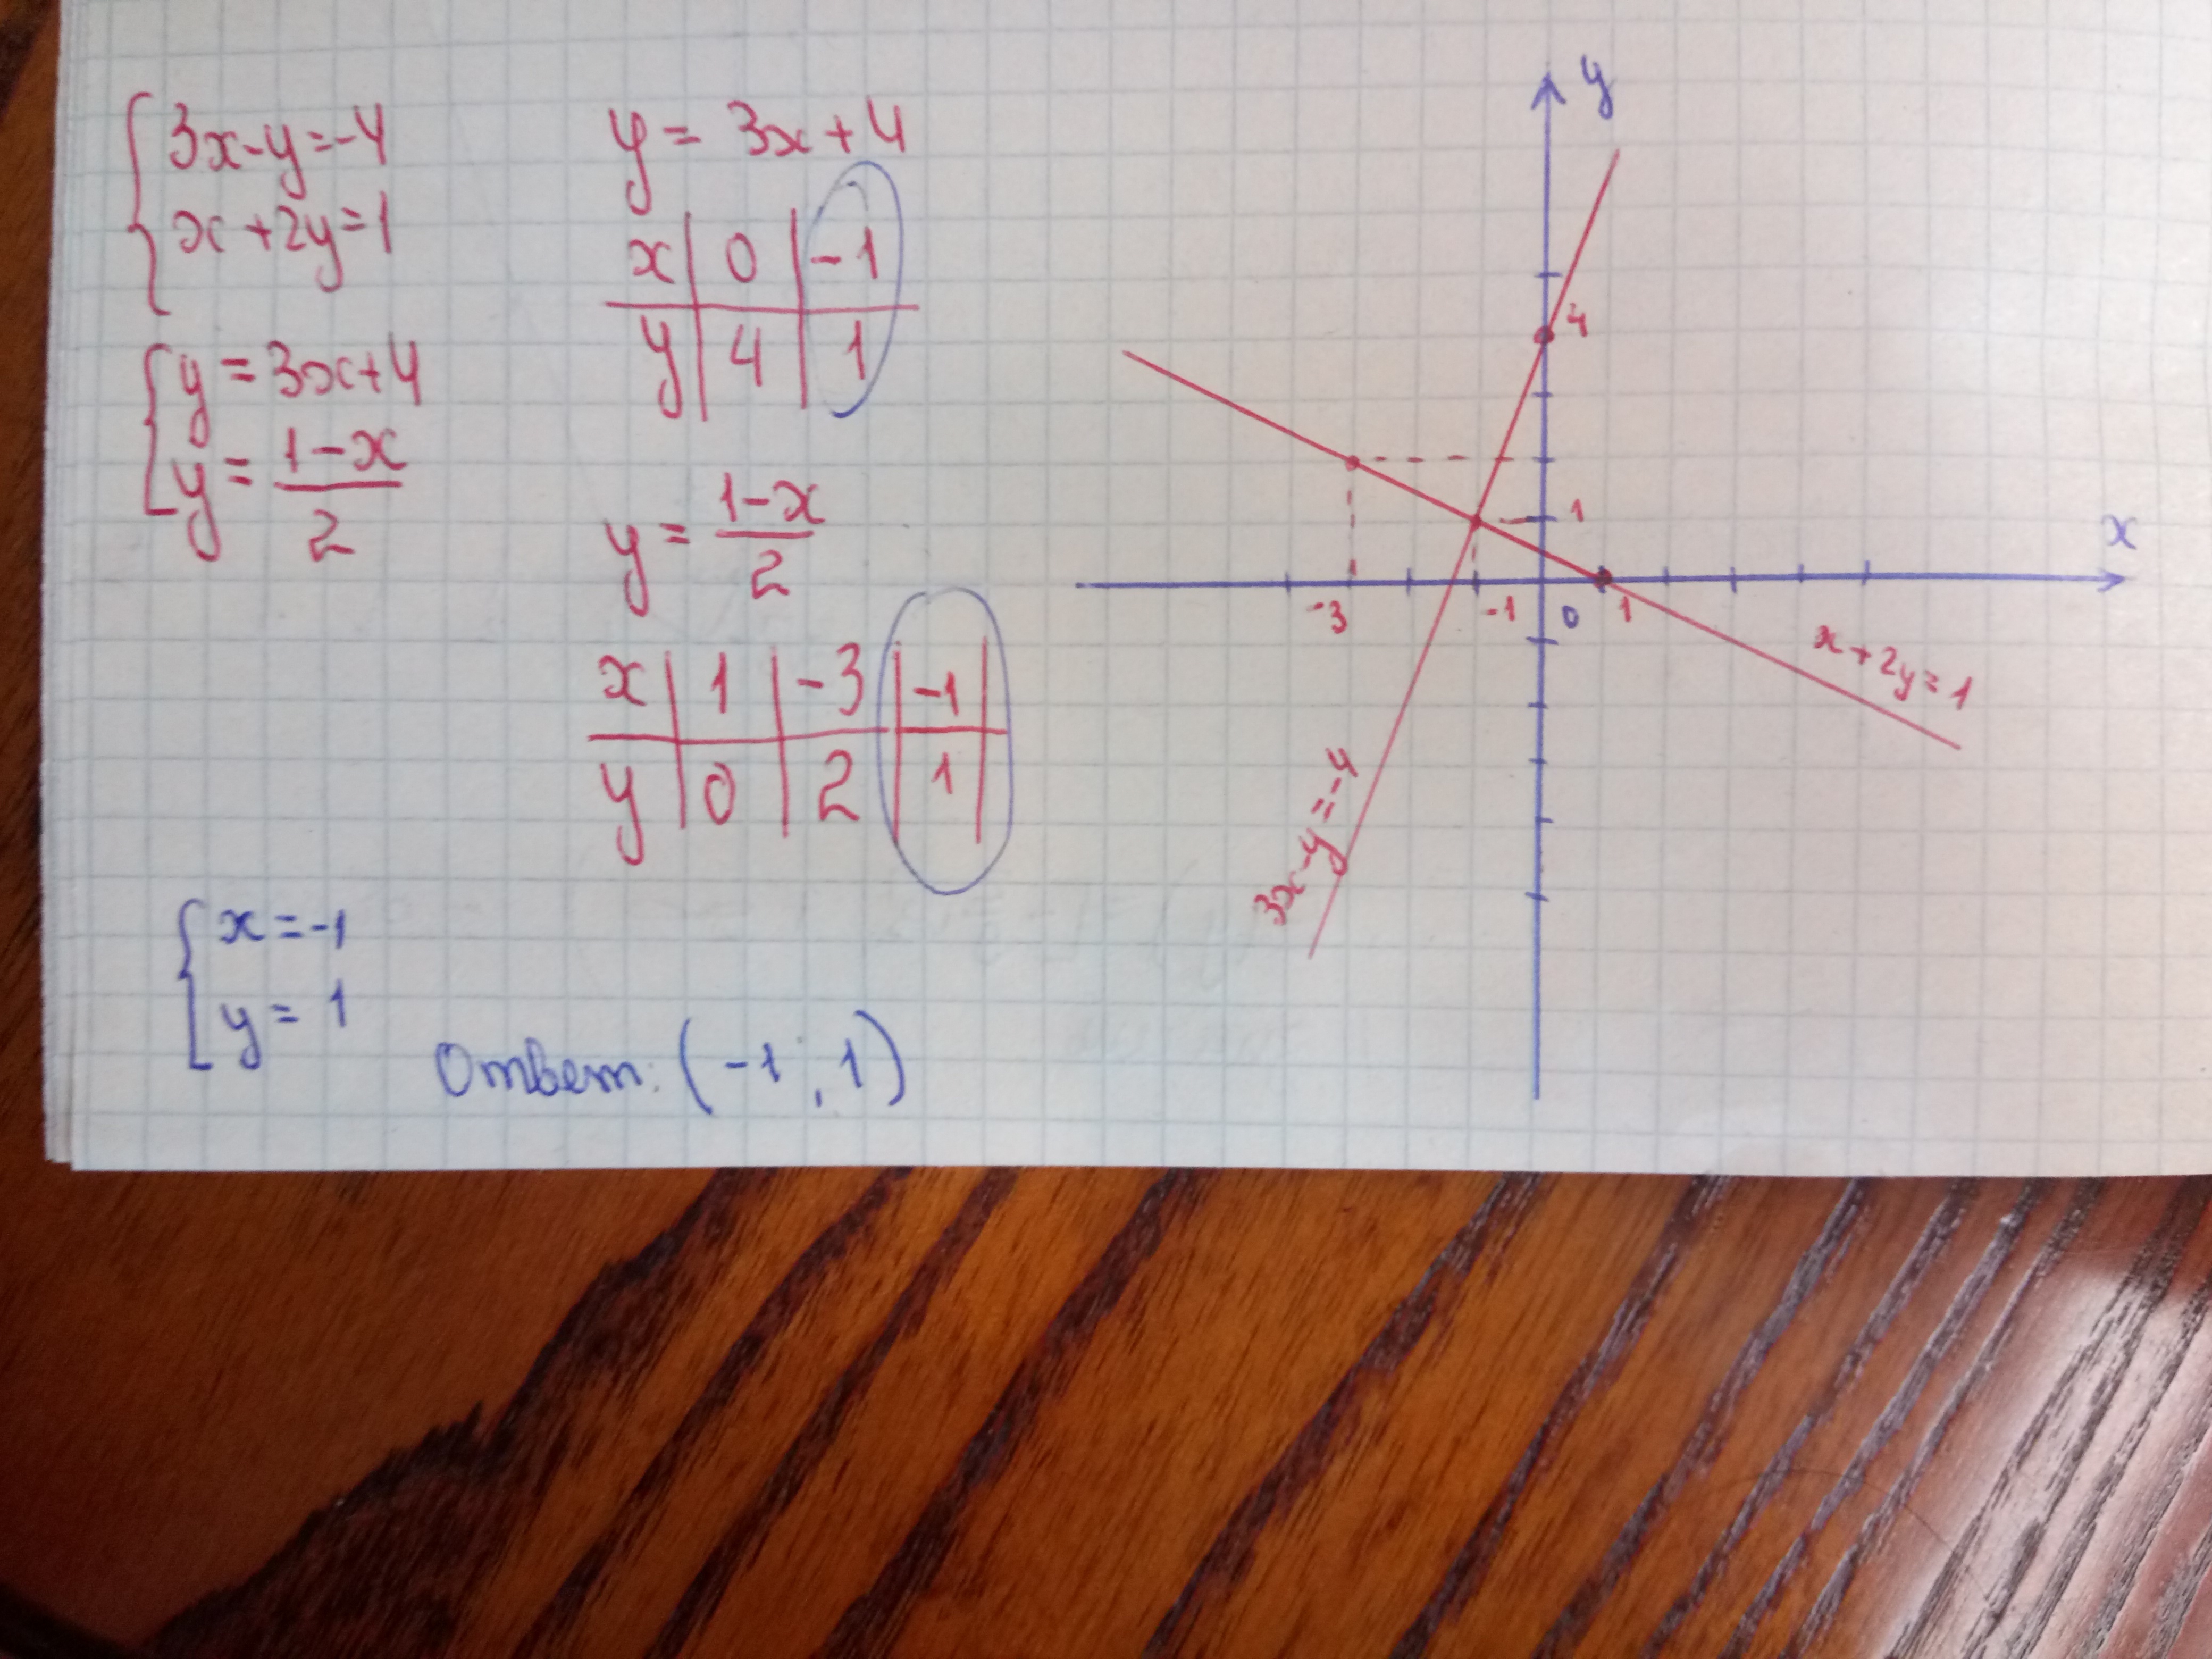 3x-y=-4
x+2y=1
y=3x+4
y=1-x/2
y=3x+4
x | 0 | -1
y | 4 | 1
y=1-x/2
x | 1 | -3 | -1
y | 0 | 2 | 1
x=-1
y=1
Ответ: (-1; 1)
y
4
1
x
-3 -1 0 1
x+2y=1
3x-y=-4